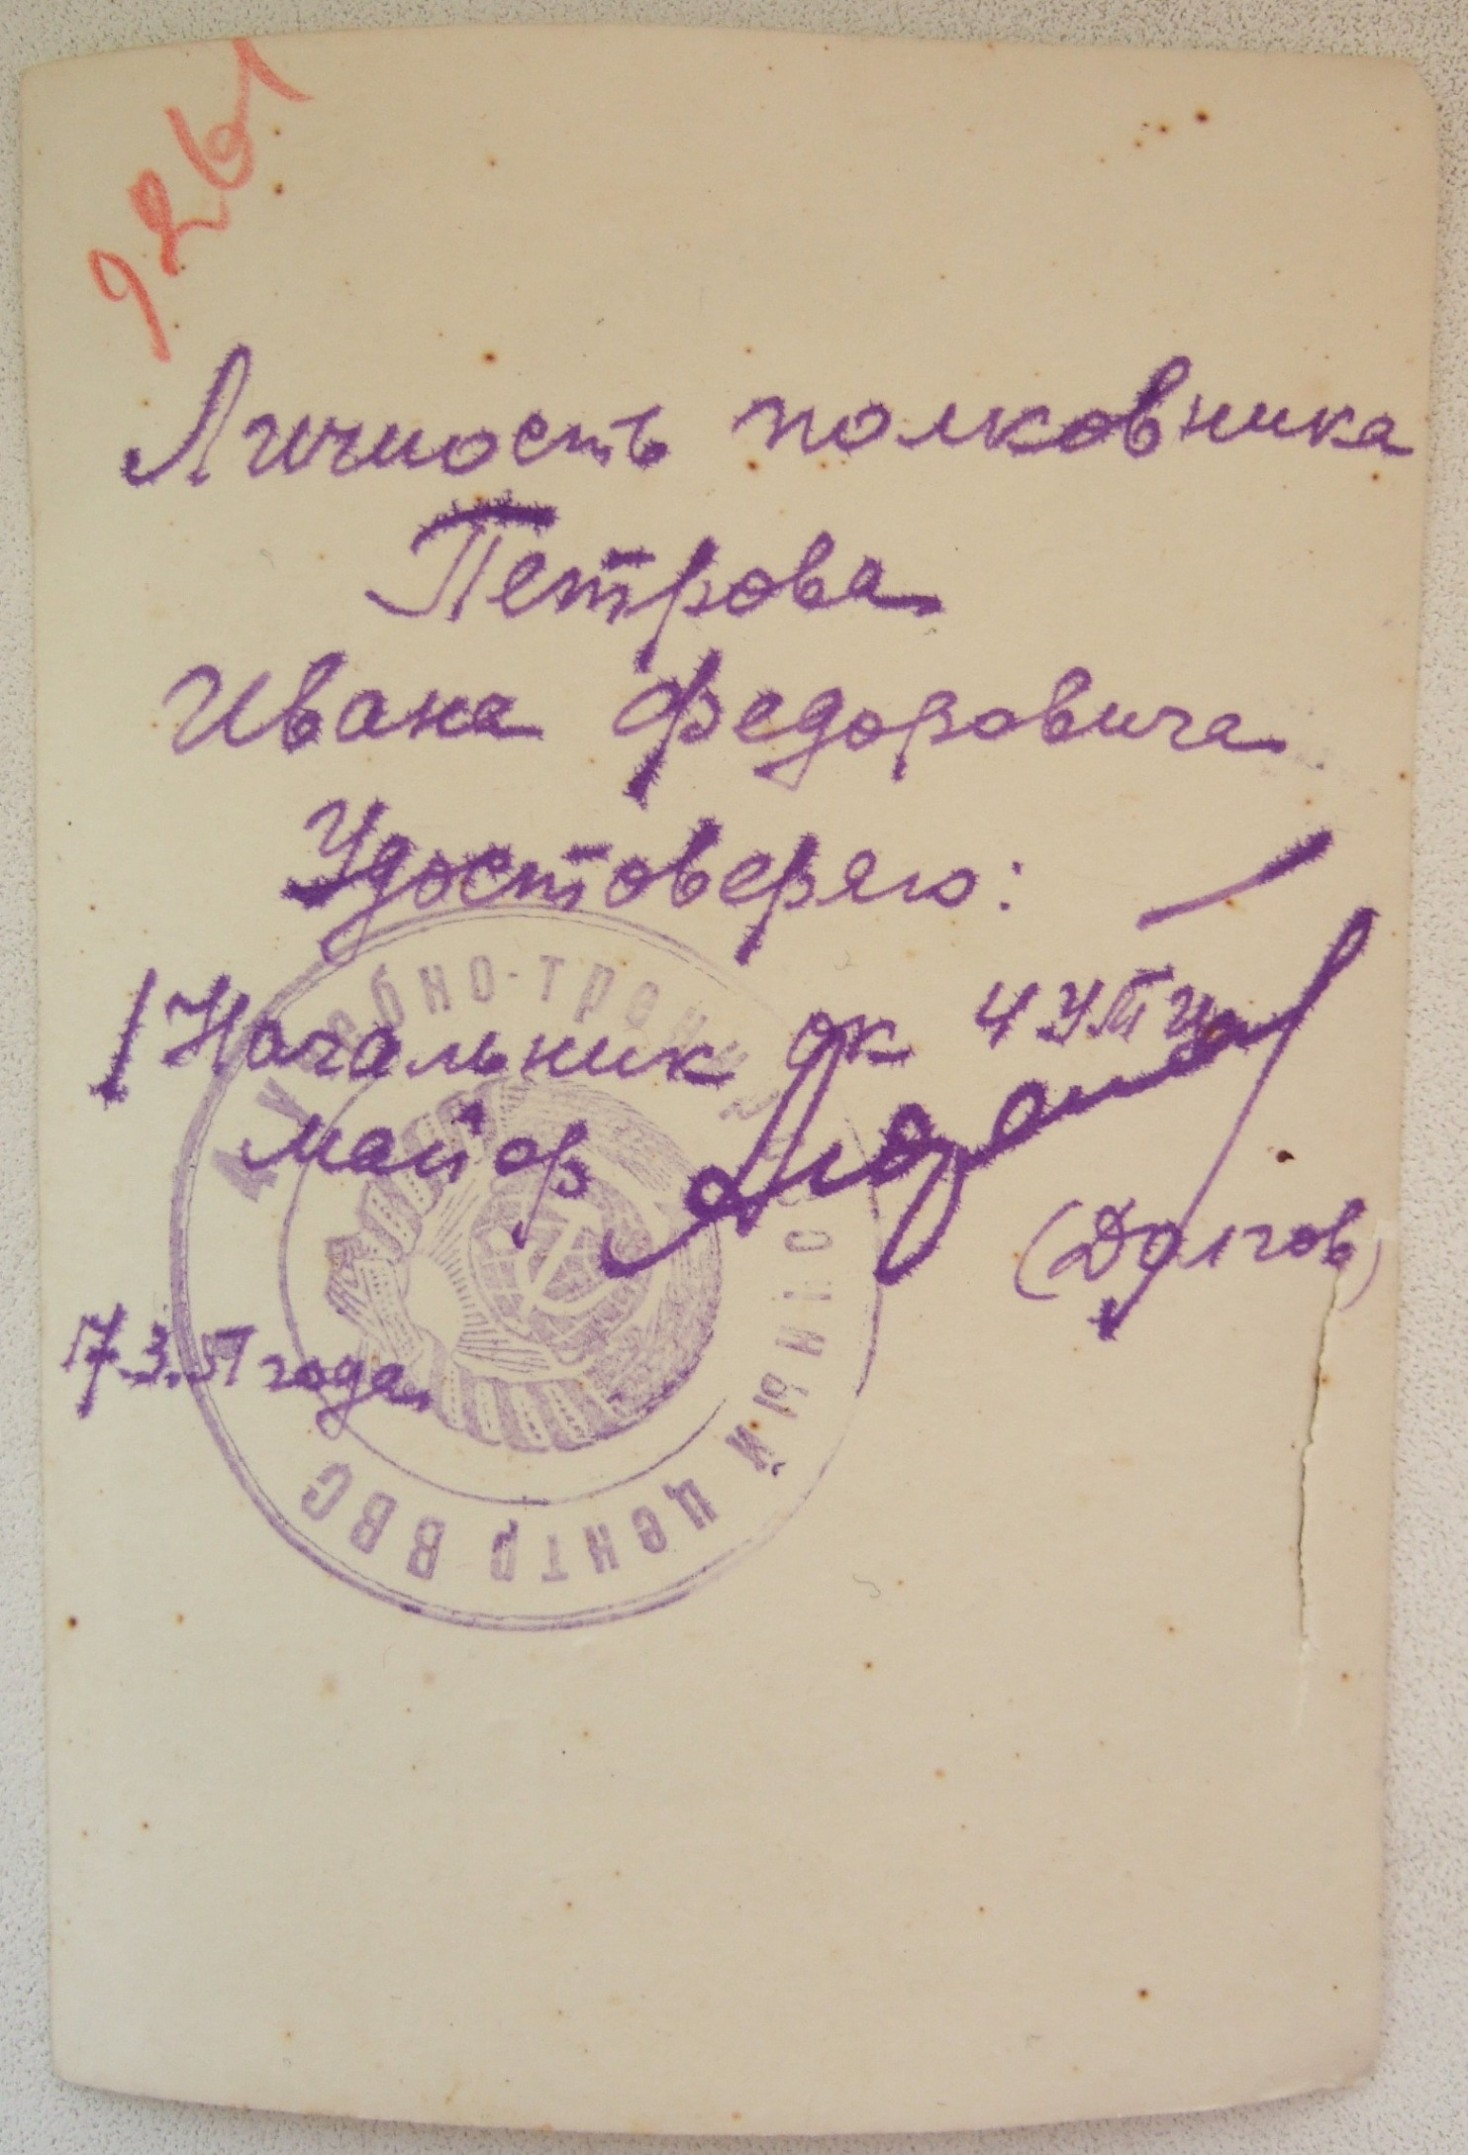 9261
Личность полковника
Петрова
Ивана Федоровича
Удостоверяю:
Начальник ОК 4 УТЦ
майор
(Долгов)
17.3.51 года
4 Учебно-тренировочный центр ВВС